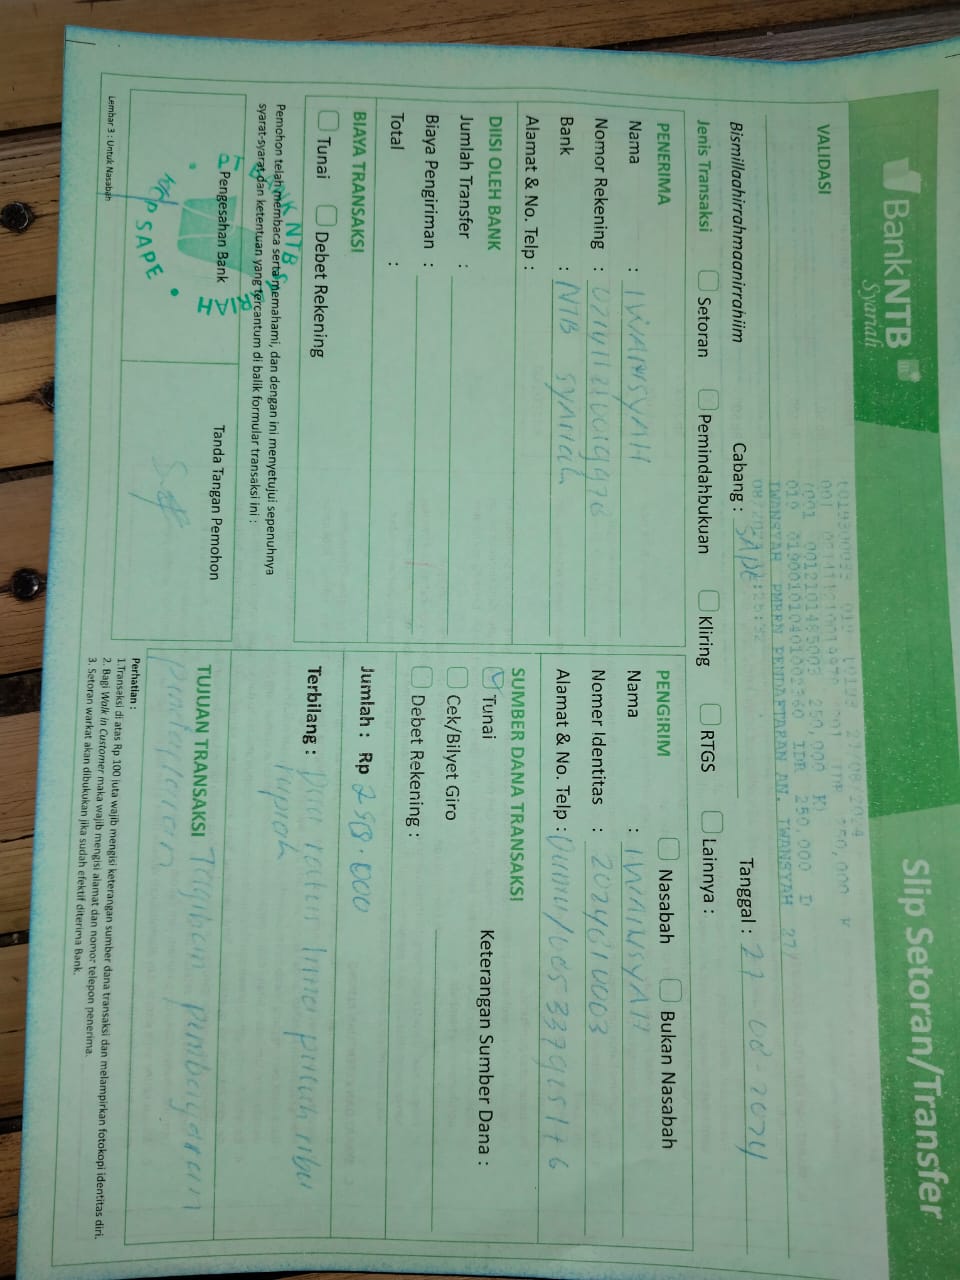 BankNTB
Syariah
Slip Setoran/Transfer
VALIDASI
250,000
001 0012101485003 250,000 K
010 0190010104010002360 IDR 250,000 D
IWANSYAH PMBRN PENDAFTARAN AN. IWANSYAH 27/
Bismillaahirrahmaanirrahiim
Cabang : SAPE
Tanggal : 27-08-2024
Jenis Transaksi
Setoran
Pemindahbukuan
Kliring
RTGS
Lainnya :
PENERIMA
Nama : IWANSYAH
Nomor Rekening :
Bank : NTB Syariah
Alamat & No. Telp :
PENGIRIM
Nasabah
Bukan Nasabah
Nama : IWANSYAH
Nomer Identitas :
Alamat & No. Telp :
DIISI OLEH BANK
Jumlah Transfer :
Biaya Pengiriman :
Total :
SUMBER DANA TRANSAKSI
Tunai
Keterangan Sumber Dana :
Cek/Bilyet Giro
Debet Rekening :
BIAYA TRANSAKSI
Tunai
Debet Rekening
Jumlah : Rp 250.000
Terbilang : Dua ratus lima puluh ribu
rupiah
Pemohon telah membaca serta memahami, dan dengan ini menyetujui sepenuhnya
syarat-syarat dan ketentuan yang tercantum di balik formular transaksi ini :
Pengesahan Bank
Tanda Tangan Pemohon
SAPE
TUJUAN TRANSAKSI
pembayaran
Perhatian :
1.Transaksi di atas Rp 100 juta wajib mengisi keterangan sumber dana transaksi dan melampirkan fotokopi identitas diri.
2. Bagi Walk in Customer maka wajib mengisi alamat dan nomor telepon penerima.
3. Setoran warkat akan dibukukan jika sudah efektif diterima Bank.
Lembar 3 : Untuk Nasabah